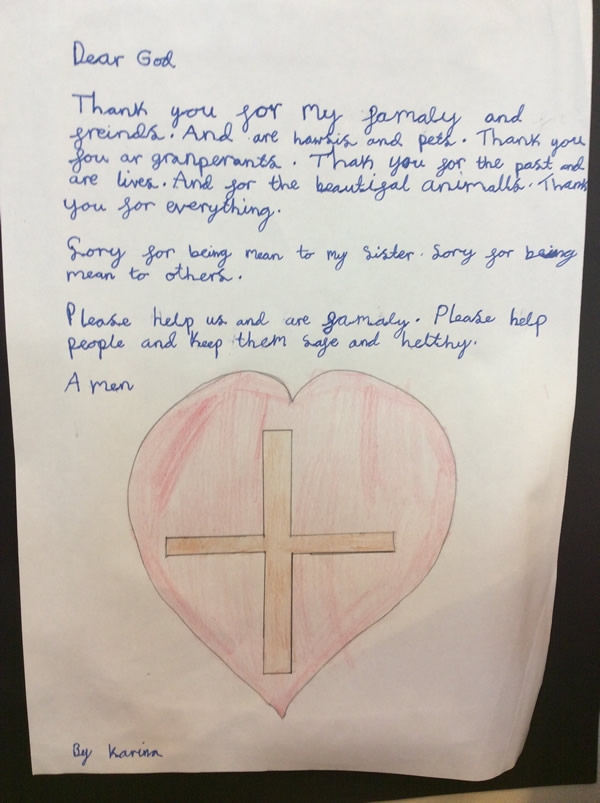 Dear God
Thank you for my famaly and
freinds. And are hawsis and pets. Thank you
fou ar granperants. Thak you for the past and
are lives. And for the beautifal animalls. Thank
you for everything.
Sory for being mean to my sister. Sory for being
mean to others.
Please help us and are famaly. Please help
people and keep them safe and helthy.
Amen
By Karina